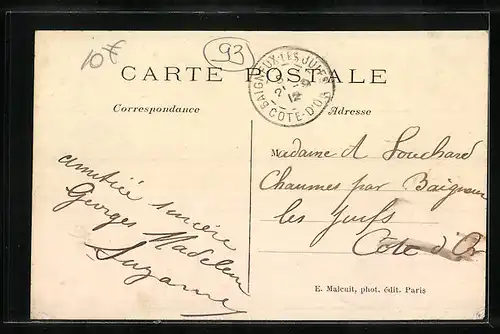 10F
93
CARTE POSTALE
BAIGNEUX-LES-JUIFS
12
COTE-D'OR
Correspondance
Adresse
amitié sincère
Georges Madeleine
Suzanne
Madame A Souchard
Chaumes par Baigneux
les Juifs
Cote d'Or
E. Malcuit, phot. édit. Paris